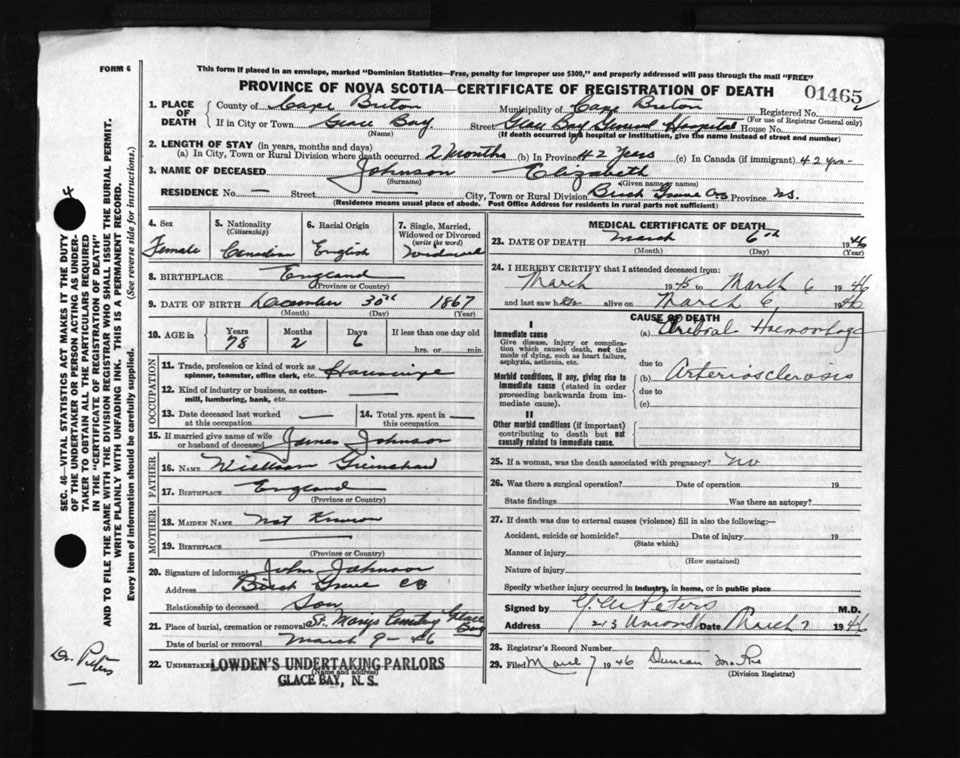 FORM 6
This form if placed in an envelope, marked "Dominion Statistics—Free, penalty for improper use $300," and properly addressed will pass through the mail "FREE"
PROVINCE OF NOVA SCOTIA—CERTIFICATE OF REGISTRATION OF DEATH
01465
1. PLACE OF DEATH County of Cape Breton Municipality of Cape Breton Registered No.
(For use of Registrar General only)
If in City or Town Glace Bay Street Glace Bay General Hospital House No.
(Name) (If death occurred in a hospital or institution, give the name instead of street and number)
2. LENGTH OF STAY (in years, months and days)
(a) In City, Town or Rural Division where death occurred 2 Months (b) In Province 42 Years (c) In Canada (if immigrant) 42 yrs.
3. NAME OF DECEASED Johnson Elizabeth
(Surname) (Given name or names)
RESIDENCE No. — Street — City, Town or Rural Division Birch Grove Province N.S.
(Residence means usual place of abode. Post Office Address for residents in rural parts not sufficient)
4. Sex Female
5. Nationality (Citizenship) Canadian
6. Racial Origin English
7. Single, Married, Widowed or Divorced (write the word) Widowed
8. BIRTHPLACE England
(Province or Country)
9. DATE OF BIRTH December 30th 1867
(Month) (Day) (Year)
10. AGE in Years 78 Months 2 Days 6 If less than one day old
hrs. or min.
OCCUPATION
11. Trade, profession or kind of work as spinner, teamster, office clerk, etc. Housewife
12. Kind of industry or business, as cotton-mill, lumbering, bank, etc. —
13. Date deceased last worked at this occupation —
14. Total yrs. spent in this occupation —
15. If married give name of wife or husband of deceased James Johnson
FATHER
16. NAME William Grimshaw
17. BIRTHPLACE England
(Province or Country)
MOTHER
18. MAIDEN NAME Not Known
19. BIRTHPLACE —
(Province or Country)
20. Signature of informant John Johnson
Address Birch Grove CB
Relationship to deceased Son
21. Place of burial, cremation or removal St. Marys Cemetery Glace Bay
Date of burial or removal March 9 - 46
22. UNDERTAKER LOWDEN'S UNDERTAKING PARLORS
(Name and address)
GLACE BAY, N. S.
MEDICAL CERTIFICATE OF DEATH
23. DATE OF DEATH March 6th 1946
(Month) (Day) (Year)
24. I HEREBY CERTIFY that I attended deceased from:
March 1945 to March 6 1946
and last saw her alive on March 6 1946
CAUSE OF DEATH
I
Immediate cause
Give disease, injury or complication which caused death, not the mode of dying, such as heart failure, asphyxia, asthenia, etc.
(a) Cerebral Haemorrhage
due to
Morbid conditions, if any, giving rise to immediate cause (stated in order proceeding backwards from immediate cause).
(b) Arteriosclerosis
due to
(c)
II
Other morbid conditions (if important) contributing to death but not causally related to immediate cause.
25. If a woman, was the death associated with pregnancy? No
26. Was there a surgical operation? Date of operation 19
State findings Was there an autopsy?
27. If death was due to external causes (violence) fill in also the following:—
Accident, suicide or homicide? Date of injury 19
(State which)
Manner of injury
(How sustained)
Nature of injury
Specify whether injury occurred in industry, in home, or in public place
Signed by Peters M.D.
Address 213 Union St Date March 7 1946
28. Registrar's Record Number
29. Filed March 7 1946 Duncan
(Division Registrar)
SEC. 46—VITAL STATISTICS ACT MAKES IT THE DUTY
OF THE UNDERTAKER OR PERSON ACTING AS UNDERTAKER TO OBTAIN ALL THE PARTICULARS REQUIRED
IN THE "CERTIFICATE OF REGISTRATION OF DEATH"
AND TO FILE THE SAME WITH THE DIVISION REGISTRAR WHO SHALL ISSUE THE BURIAL PERMIT.
WRITE PLAINLY WITH UNFADING INK. THIS IS A PERMANENT RECORD.
Every item of information should be carefully supplied. (See reverse side for instructions.)
Dr. Peters